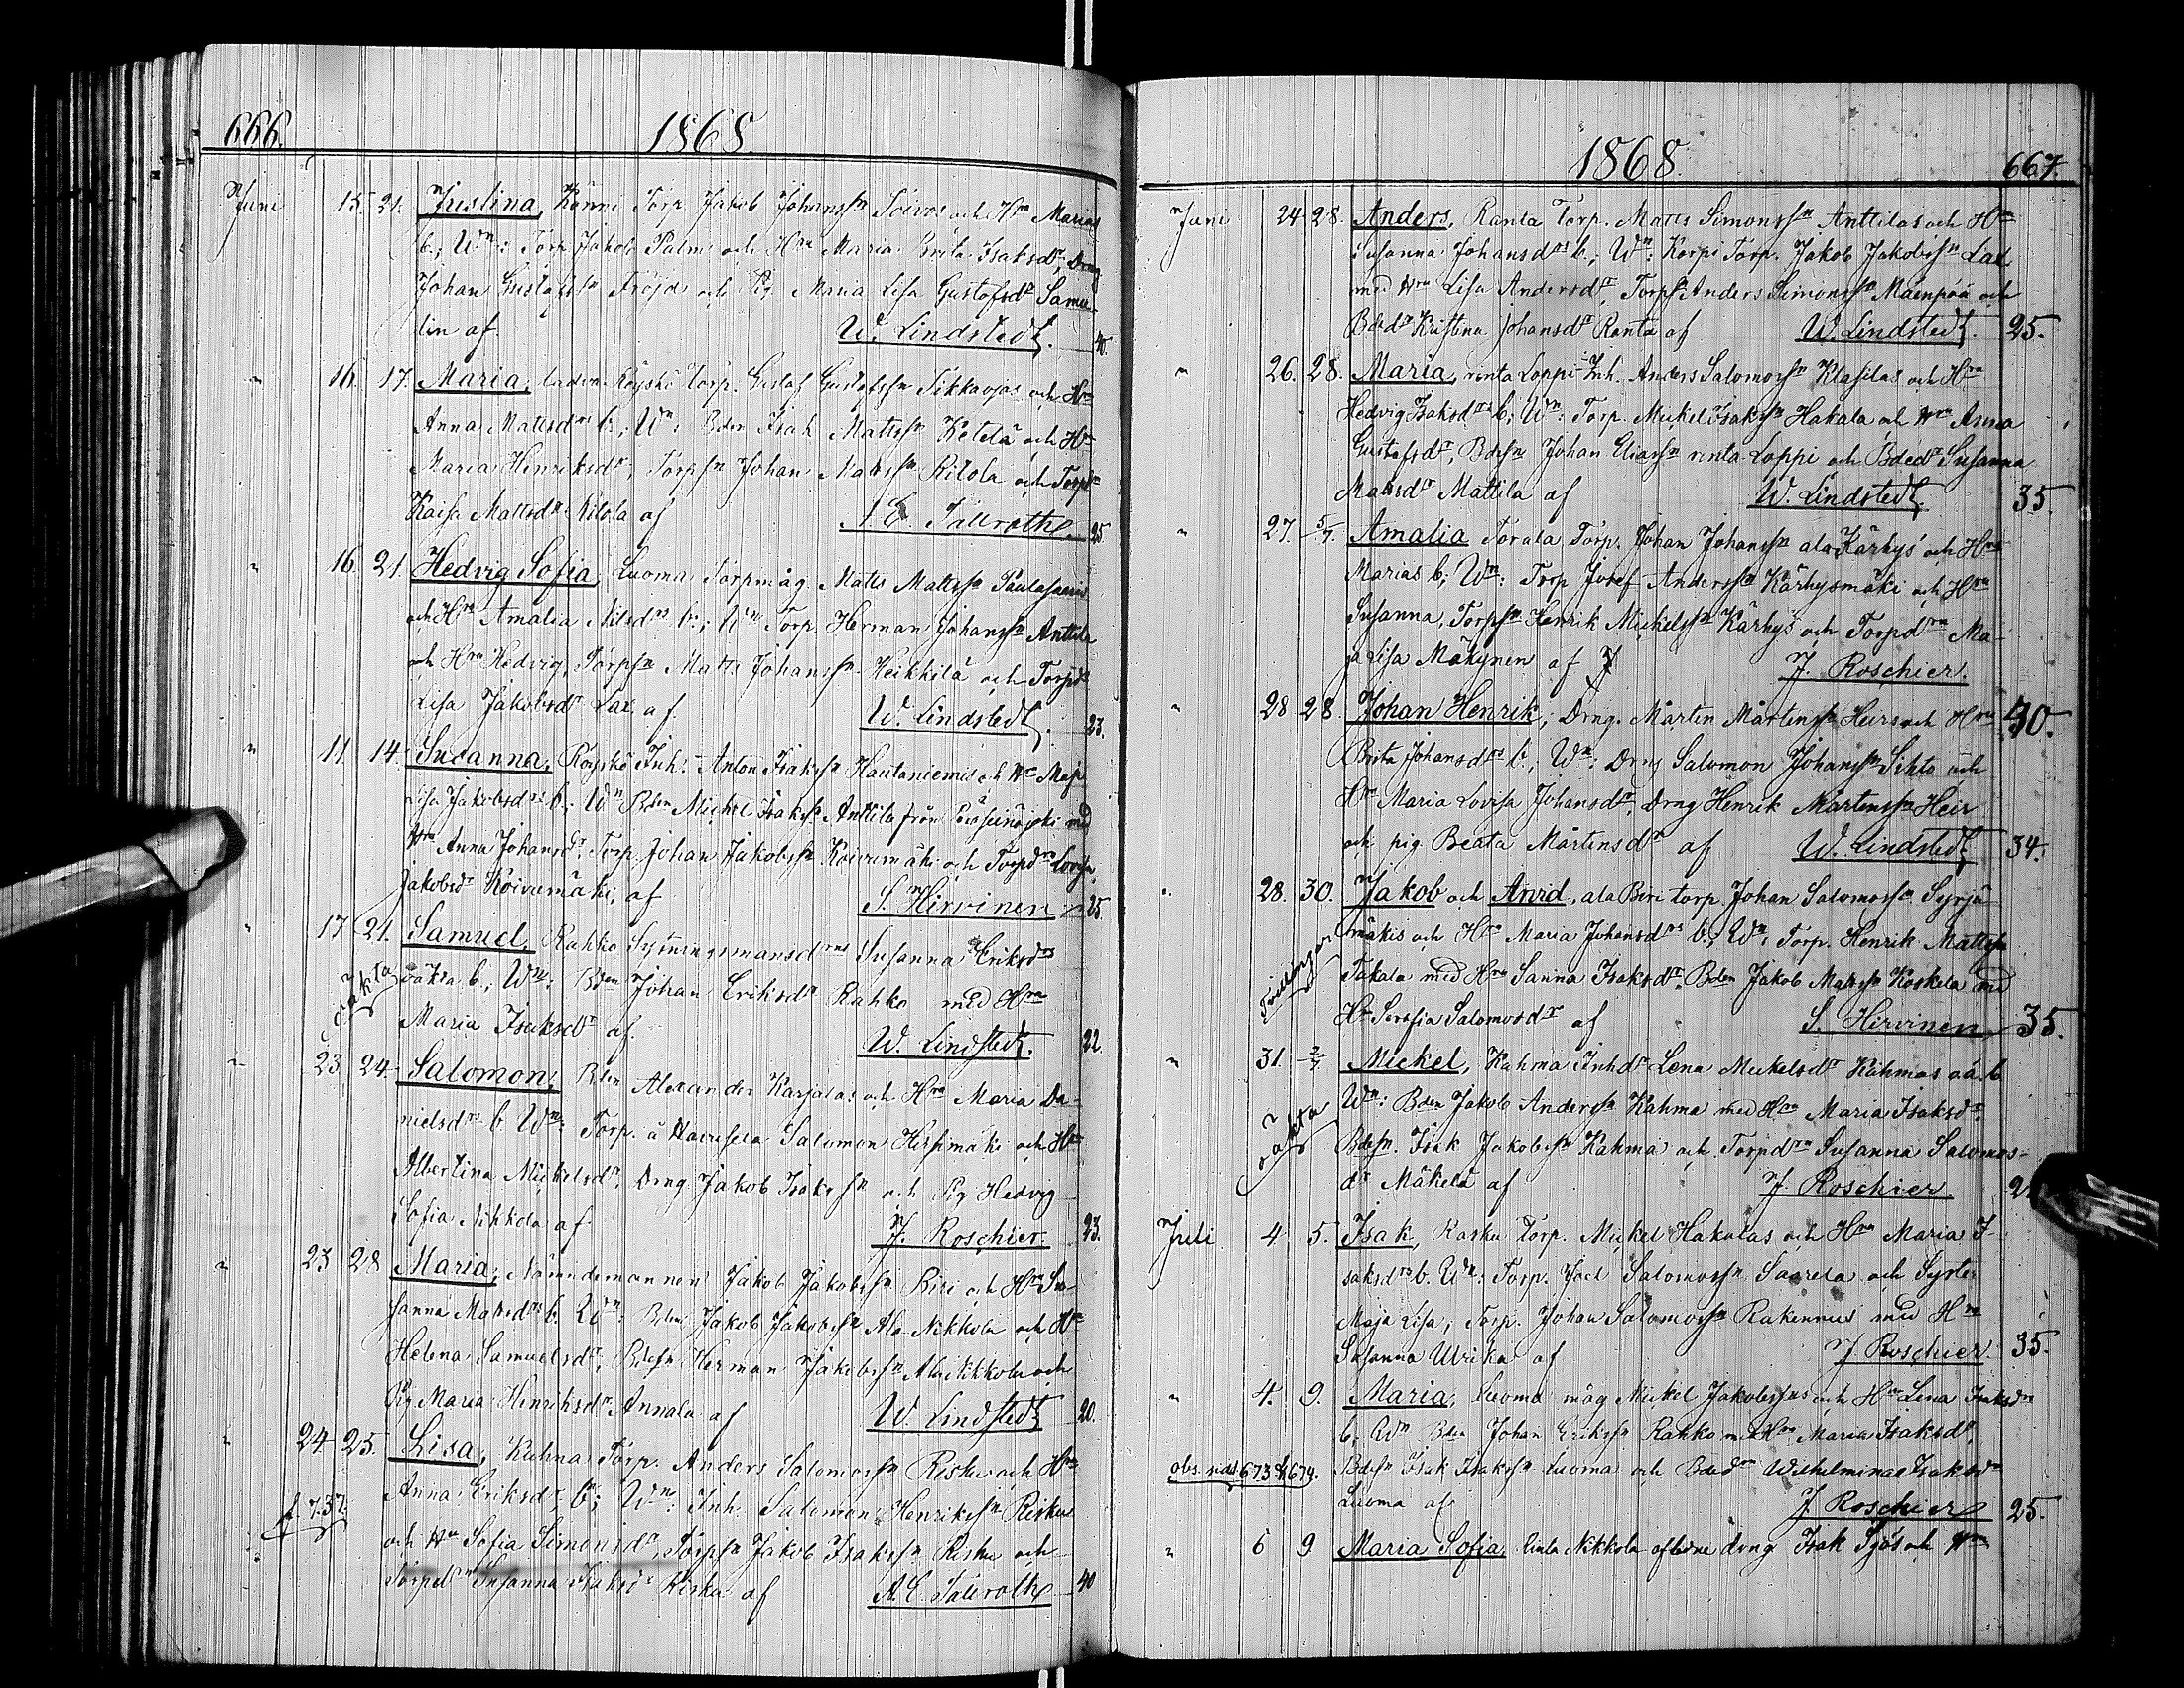 666.
1868.
Juni 15. 21. Justina, Könni Torp Jakob Johanss:n Soivos och H:ru Marias
b.; W:n: Torp. Jakob Palm och H:ru Maria Brita Isaksd:r, Drng
Johan Gustafss:n Fröjd och Pig. Maria Lisa Gustafsd:r Samu-
lin af W. Lindstedt. 40.
" 16. 17. Maria, Köyskö Torp. Gustaf Gustafss:n Sikkaojas och H:ru
Anna Mattsd:rs b.; W:n: Bden Isak Mattss:n Ketelä och H:u
Maria Henriksd:r, Torps:n Johan Matss:n Rilola och Torpd:r
Kaisa Mattsd:r Rilola af A. E. Tallroth. 25.
" 16. 21. Hedvig Sofia, Luoma Torpmåg Matts Mattss:n Paulasaaris
och H:ru Amalia Nilsd:rs b.; W:n Torp. Herman Johanss:n Anttila
och H:ru Hedvig, Torps:n Matts Johanss:n Heikkilä och Torpd:r
Lisa Jakobsd:r Lax af W. Lindstedt. 23.
" 11. 14. Susanna, Köyskö Inh. Anton Isakss:n Hautaniemis och H:u Maja
Lisa Jakobsd:rs b.; W:n Bden Mickel Isakss:n Anttila från Peräseinäjoki med
H:ru Anna Johansd:r, Torp. Johan Jakobss:n Koivumäki och Torpd:r Lovisa
Jakobsd:r Koivumäki, af S. Hirvinen 25.
" 17. 21. Samuel, Rahko Sytningsmansd:rns Susanna Eriksd:rs
oäkta
oäkta b.; W:n: Bden Johan Eriksd:r Rahko med H:ru
Maria Isaksd:r af W. Lindstedt. 22.
" 23. 24. Salomon, Bden Alexander Karjalas och H:ru Maria Da-
nielsd:rs b. W:n: Torp. å Havusela Salomon Hirsimäki och H:ru
Albertina Mickelsd:r, Drng Jakob Isakss:n och Pig Hedvig
Sofia Nikkola af J. Roschier. 23.
" 23 28 Maria, Nämndemannen Jakob Jakobss:n Biri och H:ru Su-
sanna Matsd:rs b. W:n: Bden Jakob Jakobss:n Ala-Nikkola och H:u
Helena Samuelsd:r, Bdes:n Herman Jakobss:n Ala Nikkola och
Pig Maria Henriksd:r Annala af W. Lindstedt 20.
" 24 25. Lisa, Kahma Torp. Anders Salomoss:n Risku och H:ru
Anna Eriksd:rs b.; W:n: Inh. Salomon Henrikss:n Risku
f. 737.
och H:u Sofia Simonsd:r, Torps:n Jakob Isakss:n Risku och
Torpd:rn Susanna Isaksd:r Risku af A. E. Tallroth 40
1868. 667.
Juni 24 28. Anders, Ranta Torp. Matts Simonss:n Anttilas och H:ru
Susanna Johansd:rs b.; W:n: Korpi Torp. Jakob Jakobss:n Lax
med H:ru Lisa Andersd:r, Torps:n Anders Simonss:n Mäenpää och
Bded:r Kristina Johansd:r Ranta af W. Lindstedt. 25.
" 26. 28. Maria, renta Loppi-Inh. Anders Salomoss:n Klasilas och H:ru
Hedvig Isaksd:rs b; W:n: Torp. Mickel Isakss:n Hakala och H:ru Anna
Gustafsd:r, Bdes:n Johan Eliass:n renta-Loppi och Bded:r Susanna
Matsd:r Mattila af W. Lindstedt 35.
" 27. 5/7. Amalia Torala Torp. Johan Johanss:n ala-Kärhys' och H:ru
Marias b; W:n: Torp Josef Anderss:n Kärhysmäki och H:ru
Susanna, Torps:n Henrik Mickelss:n Kärhys och Torpd:rn Ma-
ja Lisa Mäkynen af J. Roschier.
" 28 28. Johan Henrik, Drng. Mårten Mårtenss:n Heirs och H:ru 40.
Brita Johansd:rs b.; W:n: Drng Salomon Johanss:n Sihto och
H:ru Maria Lovisa Johansd:r, Drng Henrik Mårtenss:n Heir
och pig. Beata Mårtensd:r af W. Lindstedt 34.
" 28. 30. Jakob och Arvid, ala Biri torp. Johan Salomoss:n Syrjä-
Tvillingar
mäkis och H:ru Maria Johansd:rs b.; W:n: Torp. Henrik Mattss:n
Takala med H:ru Sanna Isaksd:r, Bden Jakob Matss:n Koskela med
H:u Serafia Salomosd:r af S. Hirvinen 35.
" 31. 2/7. Mickel, Kahma Inhd:r Lena Mickelsd:r Kahmas oä. b.
oäkta
W:n: Bden Jakob Anderss:n Kahma med H:ru Maria Isaksd:r,
Bdes:n. Isak Jakobss:n Kahma och Torpd:rn Susanna Salomos-
d:r Mäkelä af J. Roschier
Juli 4 5. Isak, Rasku Torp. Mickel Hakalas och H:ru Maria I-
saksd:rs b. W:n: Torp. Joel Salomoss:n Saarela och Syster
Maja Lisa; Torp. Johan Salomoss:n Rakennus med H:ru
Susanna Ulrika af J Roschier. 35.
" 4. 9. Maria, Luoma måg Mickel Jakobss:ns och H:ru Lena Isaksd:rs
b; W:n Bden Johan Erikss:n Rahko med H:ru Maria Isaksd:r,
obs. sid. 673 & 674.
Bdes:n Isak Isakss:n Luoma och Bded:rn Wilhelmina Isaksd:r
Luoma af J. Roschier 25.
" 6 9 Maria Sofia, Rinta Nikkola aflidne drng Isak Sjös och H:ru